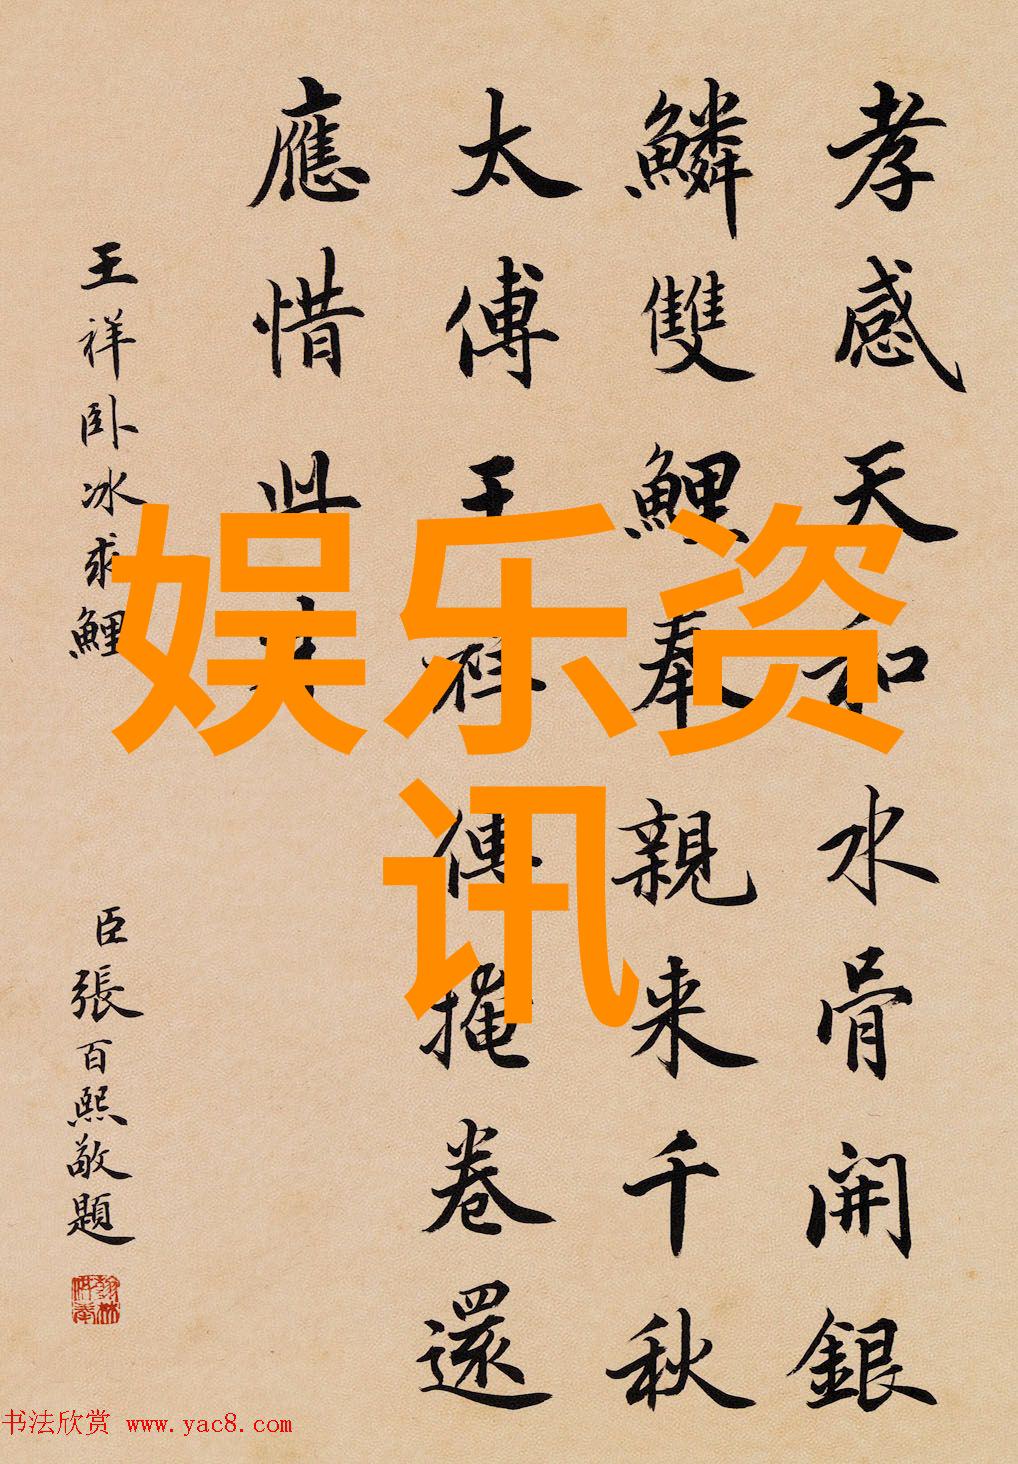 孝感天和水骨開銀
鱗雙鯉奉親来千秋
太傅王祥傳掩卷還
應惜此
王祥卧冰求鯉
臣張百熙敬題
翰林供奉
娱乐资
讯
书法欣赏 www.yac8.com